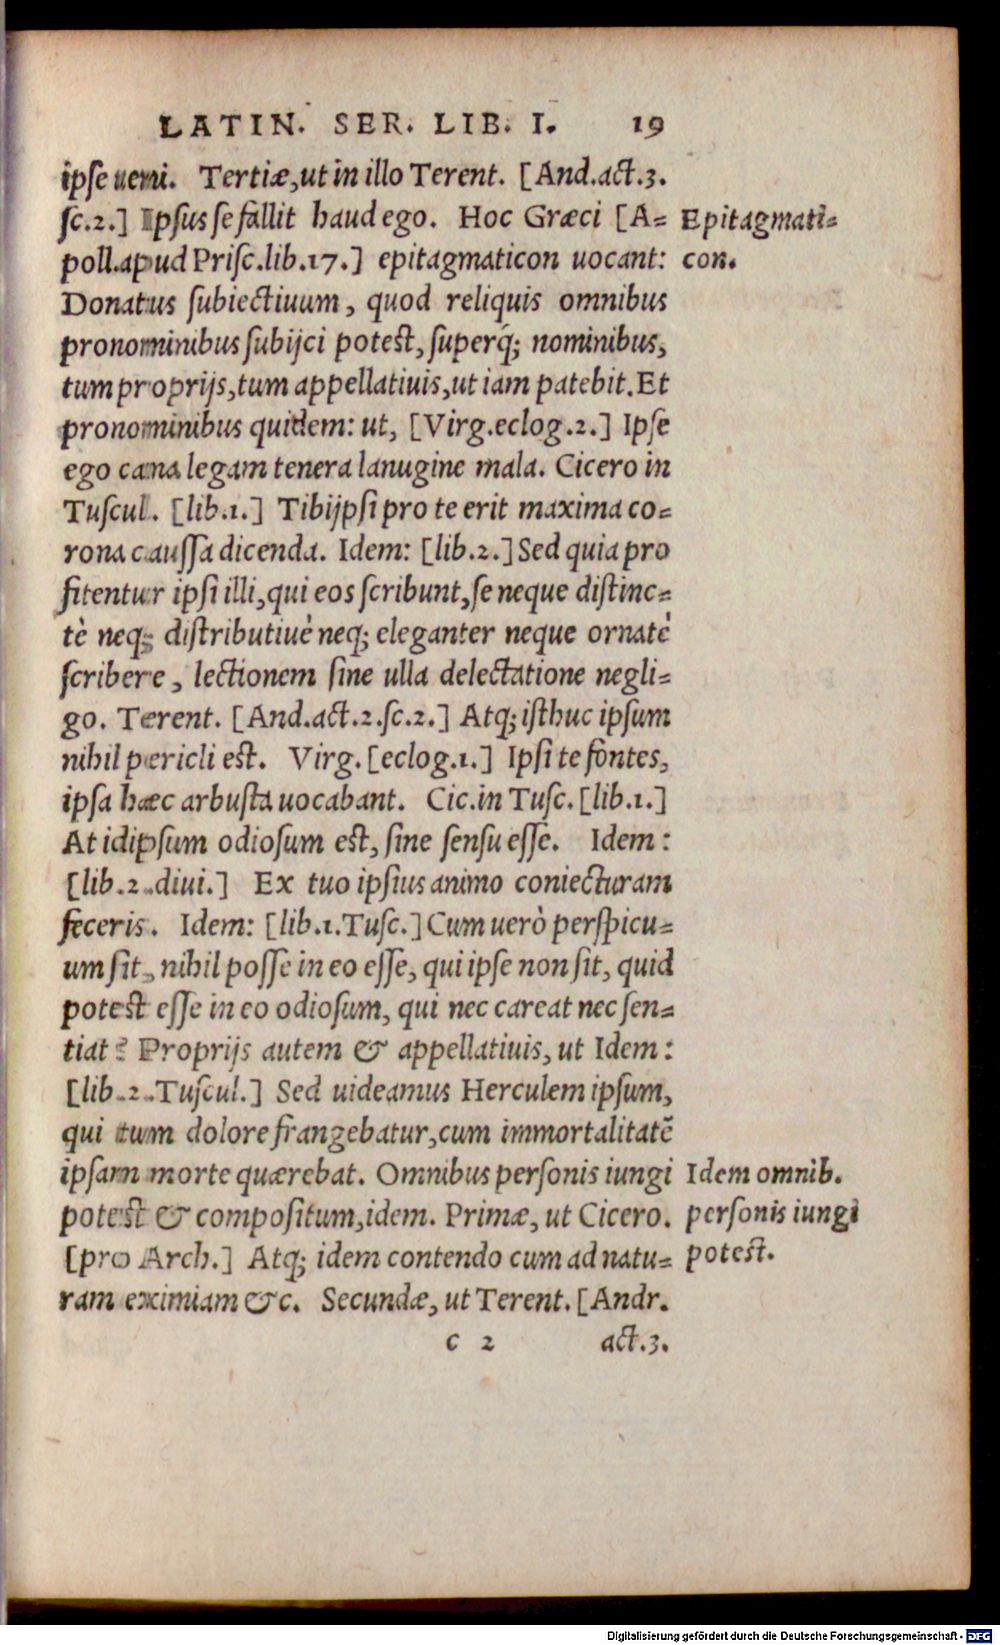 LATIN. SER. LIB. I. 19
ipſe ueni. Tertiæ, ut in illo Terent. [And.act.3.
ſc.2.] Ipſus ſe fallit haud ego. Hoc Græci [A=
poll.apud Priſc.lib.17.] epitagmaticon uocant:
Donatus ſubiectiuum, quod reliquis omnibus
pronominibus ſubijci potest, superq́; nominibus,
tum proprijs, tum appellatiuis, ut iam patebit. Et
pronominibus quidem: ut, [Virg.eclog.2.] Ipſe
ego cana legam tenera lanugine mala. Cicero in
Tuſcul. [lib.1.] Tibijpſi pro te erit maxima co=
rona cauſſa dicenda. Idem: [lib.2.] Sed quia pro
fitentur ipſi illi, qui eos ſcribunt, ſe neque distinc=
tè neq; distributiuè neq; eleganter neque ornatè
ſcribere, lectionem ſine ulla delectatione negli=
go. Terent. [And.act.2.ſc.2.] Atq; isthuc ipſum
nihil pericli est. Virg. [eclog.1.] Ipſi te fontes,
ipſa hæc arbusta uocabant. Cic.in Tuſc. [lib.1.]
At idipſum odioſum est, ſine ſenſu eſſe. Idem:
[lib.2.diui.] Ex tuo ipſius animo coniecturam
feceris. Idem: [lib.1.Tuſc.] Cum uerò perſpicu=
um ſit, nihil poſſe in eo eſſe, qui ipſe non ſit, quid
potest eſſe in eo odioſum, qui nec careat nec ſen=
tiat? Proprijs autem & appellatiuis, ut Idem:
[lib.2.Tuſcul.] Sed uideamus Herculem ipſum,
qui tum dolore frangebatur, cum immortalitatẽ
ipſam morte quærebat. Omnibus perſonis iungi
potest & compoſitum, idem. Primæ, ut Cicero.
[pro Arch.] Atq; idem contendo cum ad natu=
ram eximiam &c. Secundæ, ut Terent. [Andr.
c 2 act.3.
Epitagmati=
con.
Idem omnib.
perſonis iungi
potest.
Digitalisierung gefördert durch die Deutsche Forschungsgemeinschaft - DFG